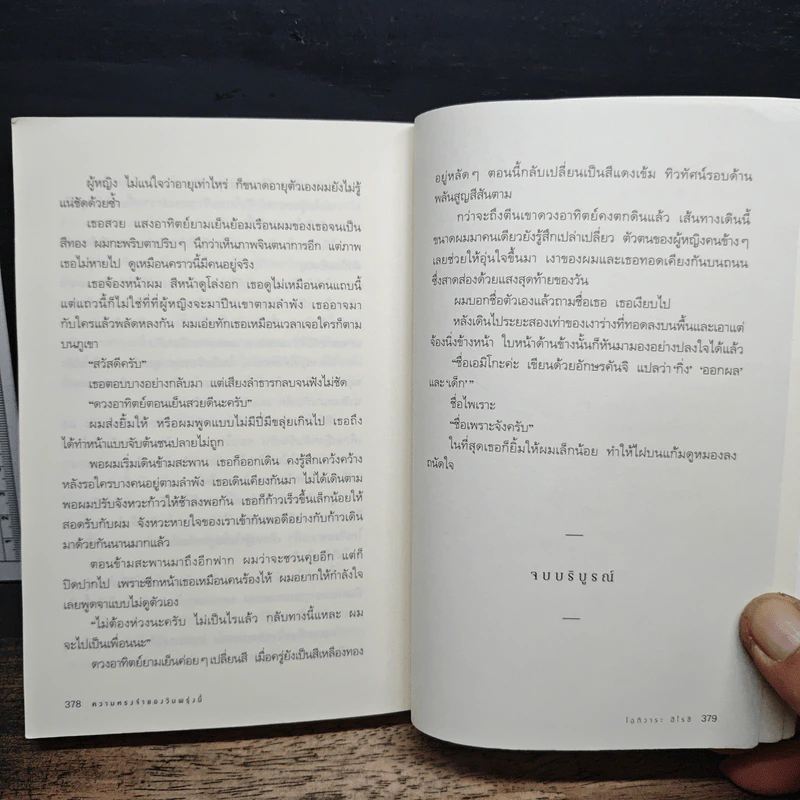 ผู้หญิง ไม่แน่ใจว่าอายุเท่าไหร่ ก็ขนาดอายุตัวเองผมยังไม่รู้
แน่ชัดด้วยซ้ำ
เธอสวย แสงอาทิตย์ยามเย็นย้อมเรือนผมของเธอจนเป็น
สีทอง ผมกะพริบตาปริบๆ นึกว่าเห็นภาพจินตนาการอีก แต่ภาพ
เธอไม่หายไป ดูเหมือนคราวนี้มีคนอยู่จริง
เธอจ้องหน้าผม สีหน้าดูโล่งอก เธอดูไม่เหมือนคนแถบนี้
แต่แถวนี้ก็ไม่ใช่ที่ที่ผู้หญิงจะมาปีนเขาตามลำพัง เธออาจมา
กับใครแล้วพลัดหลงกัน ผมเอ่ยทักเธอเหมือนเวลาเจอใครก็ตาม
บนภูเขา
“สวัสดีครับ”
เธอตอบบางอย่างกลับมา แต่เสียงลำธารกลบจนฟังไม่ชัด
“ดวงอาทิตย์ตอนเย็นสวยดีนะครับ”
ผมส่งยิ้มให้ หรือผมพูดแบบไม่มีปี่มีขลุ่ยเกินไป เธอถึง
ได้ทำหน้าแบบจับต้นชนปลายไม่ถูก
พอผมเริ่มเดินข้ามสะพาน เธอก็ออกเดิน คงรู้สึกเคว้งคว้าง
หลังรอใครบางคนอยู่ตามลำพัง เธอเดินเคียงกันมา ไม่ได้เดินตาม
พอผมปรับจังหวะก้าวให้ช้าลงพอกัน เธอก็ก้าวเร็วขึ้นเล็กน้อยให้
สอดรับกับผม จังหวะหายใจของเราเข้ากันพอดีอย่างกับก้าวเดิน
มาด้วยกันนานมากแล้ว
ตอนข้ามสะพานมาถึงอีกฟาก ผมว่าจะชวนคุยอีก แต่ก็
ปิดปากไป เพราะซีกหน้าเธอเหมือนคนร้องไห้ ผมอยากให้กำลังใจ
เลยพูดจาแบบไม่ดูตัวเอง
“ไม่ต้องห่วงนะครับ ไม่เป็นไรแล้ว กลับทางนี้แหละ ผม
จะไปเป็นเพื่อนนะ”
ดวงอาทิตย์ยามเย็นค่อยๆ เปลี่ยนสี เมื่อครู่ยังเป็นสีเหลืองทอง
378 ความทรงจำของวันพรุ่งนี้
อยู่หลัดๆ ตอนนี้กลับเปลี่ยนเป็นสีแดงเข้ม ทิวทัศน์รอบด้าน
พลันสูญสีสันตาม
กว่าจะถึงตีนเขาดวงอาทิตย์คงตกดินแล้ว เส้นทางเดินนี้
ขนาดผมมาคนเดียวยังรู้สึกเปล่าเปลี่ยว ตัวตนของผู้หญิงคนข้างๆ
เลยช่วยให้อุ่นใจขึ้นมา เงาของผมและเธอทอดเคียงกันบนถนน
ซึ่งสาดส่องด้วยแสงสุดท้ายของวัน
ผมบอกชื่อตัวเองแล้วถามชื่อเธอ เธอเงียบไป
หลังเดินไประยะสองเท่าของเงาร่างที่ทอดลงบนพื้นและเอาแต่
จ้องนิ่งข้างหน้า ใบหน้าด้านข้างนั้นก็หันมามองอย่างปลงใจได้แล้ว
“ชื่อเอมิโกะค่ะ เขียนด้วยอักษรคันจิ แปลว่า ‘กิ่ง’ ‘ออกผล’
และ ‘เด็ก’ ”
ชื่อไพเราะ
“ชื่อเพราะจังครับ”
ในที่สุดเธอก็ยิ้มให้ผมเล็กน้อย ทำให้ไฝบนแก้มดูหมองลง
ถนัดใจ
จบบริบูรณ์
โอกิวาระ ฮิโรชิ 379